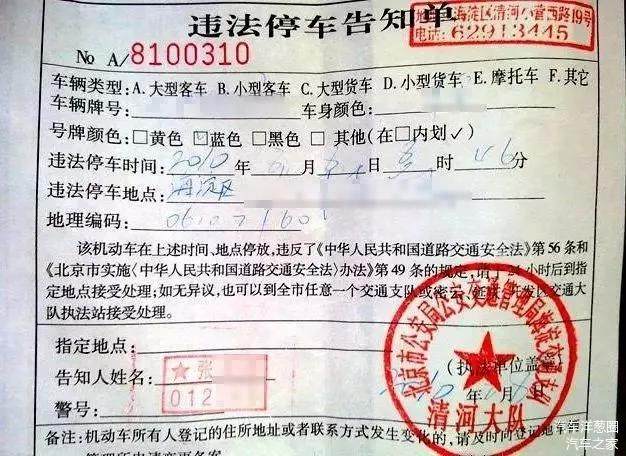 违法停车告知单
海淀区清河小营西路19号
电话:62913445
No A/8100310
车辆类型:A.大型客车 B.小型客车 C.大型货车 D.小型货车 E.摩托车 F.其它
车辆牌号: 车身颜色:
号牌颜色:□黄色 ☑蓝色 □黑色 □其他(在□内划✓)
违法停车时间:2010年 月 日 时 46分
违法停车地点:海淀区
地理编码:
该机动车在上述时间、地点停放,违反了《中华人民共和国道路交通安全法》第56条和
《北京市实施〈中华人民共和国道路交通安全法〉办法》第49条的规定,请于24小时后到指
定地点接受处理;如无异议,也可以到全市任意一个交通支队或密云、延庆、开发区交通大
队执法站接受处理。
指定地点:
(执法单位盖章)
告知人姓名:★张
2010年 月 日
警号:012
北京市公安局公安交通管理局海淀交通支队
清河大队
备注:机动车所有人登记的住所地址或者联系方式发生变化的,请及时向登记地车
管理所申请变更备案
汽车洋葱圈
汽车之家